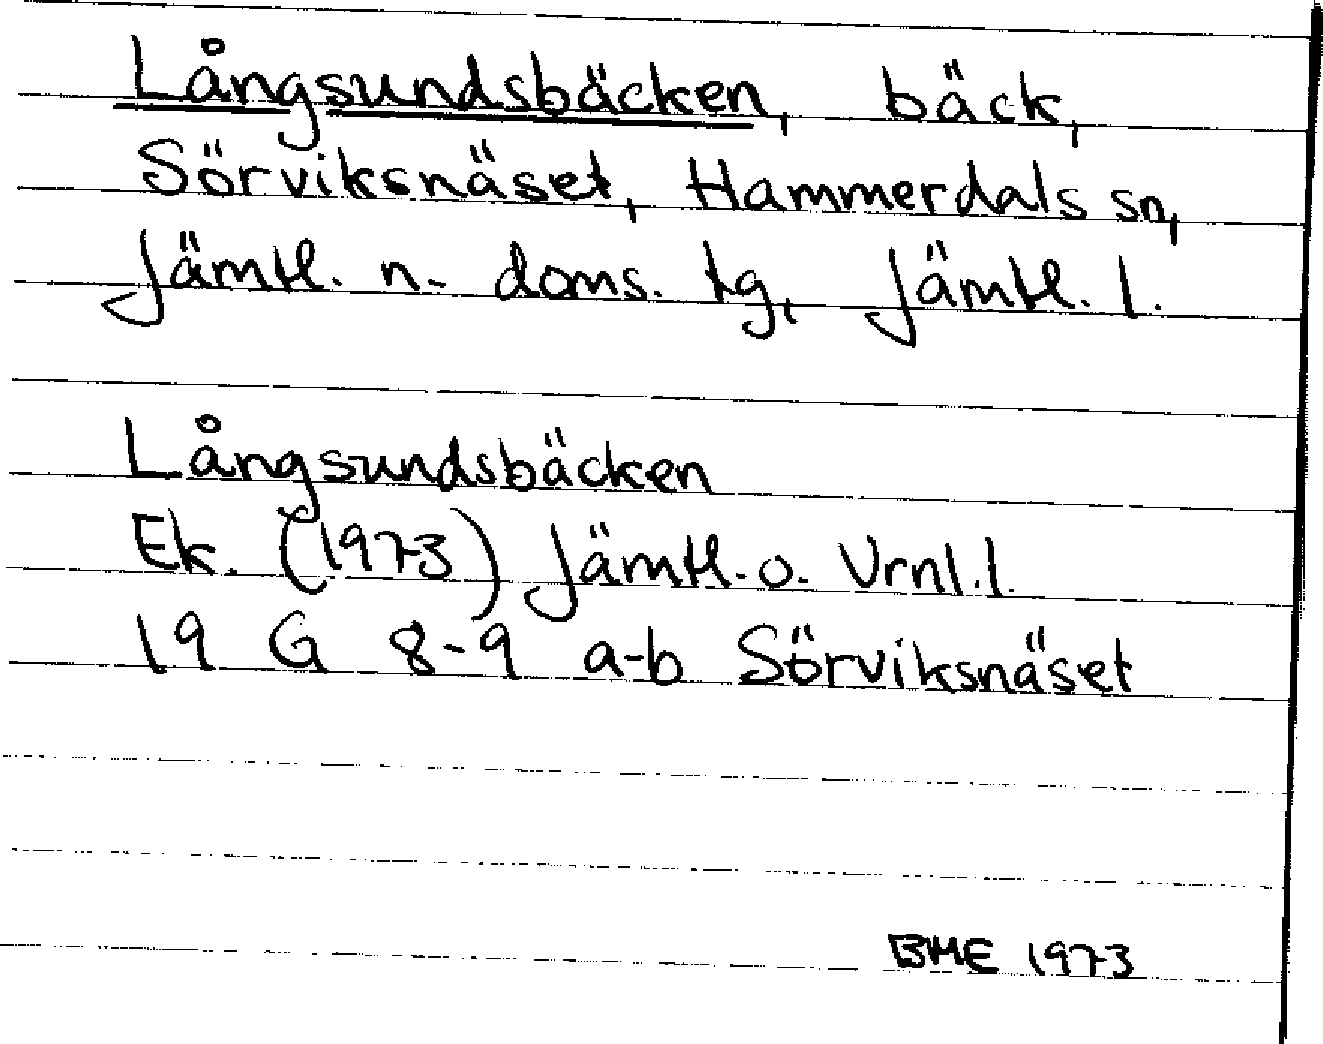 Långsundsbäcken, bäck,
Sörviksnäset, Hammerdals sn,
Jämtl. n. doms. tg, Jämtl. l.
Långsundsbäcken
Ek. (1973) Jämtl. o. Vrnl. l.
19 G 8-9 a-b Sörviksnäset
BME 1973